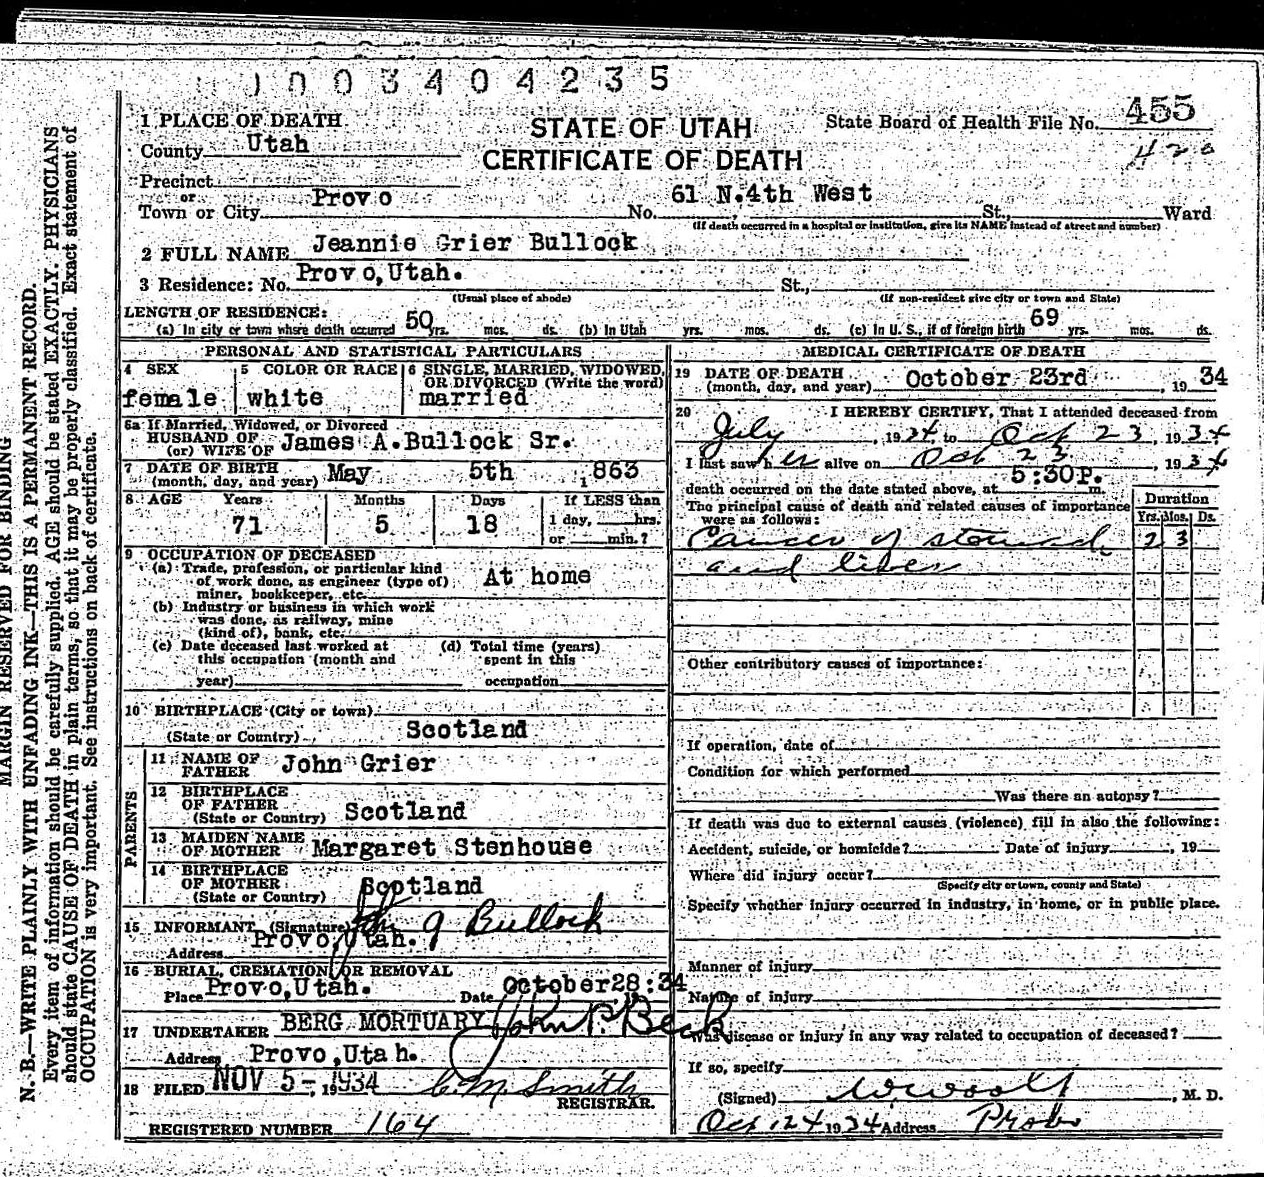 1003404235
1 PLACE OF DEATH
STATE OF UTAH
CERTIFICATE OF DEATH
State Board of Health File No. 455
420
County Utah
Precinct
or
Town or City Provo No. 61 N.4th West St., Ward
(If death occurred in a hospital or institution, give its NAME instead of street and number)
2 FULL NAME Jeannie Grier Bullock
3 Residence: No. Provo,Utah. St.,
(Usual place of abode) (If non-resident give city or town and State)
LENGTH OF RESIDENCE:
(a) In city or town where death occurred 50 yrs. mos. ds. (b) In Utah yrs. mos. ds. (c) In U. S., if of foreign birth 69 yrs. mos. ds.
PERSONAL AND STATISTICAL PARTICULARS
4 SEX female
5 COLOR OR RACE white
6 SINGLE, MARRIED, WIDOWED,
OR DIVORCED (Write the word)
married
6a If Married, Widowed, or Divorced
HUSBAND OF
(or) WIFE OF James A.Bullock Sr.
7 DATE OF BIRTH
(month, day, and year) May 5th 1863
8 AGE Years Months Days If LESS than
71 5 18 1 day, hrs.
or min.?
9 OCCUPATION OF DECEASED
(a) Trade, profession, or particular kind
of work done, as engineer (type of)
miner, bookkeeper, etc. At home
(b) Industry or business in which work
was done, as railway, mine
(kind of), bank, etc.
(c) Date deceased last worked at
this occupation (month and
year)
(d) Total time (years)
spent in this
occupation
10 BIRTHPLACE (City or town)
(State or Country) Scotland
PARENTS
11 NAME OF
FATHER John Grier
12 BIRTHPLACE
OF FATHER
(State or Country) Scotland
13 MAIDEN NAME
OF MOTHER Margaret Stenhouse
14 BIRTHPLACE
OF MOTHER
(State or Country) Scotland
15 INFORMANT (Signature) Bullock
Address Provo,Utah.
16 BURIAL, CREMATION OR REMOVAL
Place Provo,Utah. Date October28:34
17 UNDERTAKER BERG MORTUARY John P. Beck
Address Provo,Utah.
18 FILED NOV 5-1934 C. M. Smith
REGISTRAR.
REGISTERED NUMBER 164
MEDICAL CERTIFICATE OF DEATH
19 DATE OF DEATH
(month, day, and year) October 23rd, 1934
20 I HEREBY CERTIFY, That I attended deceased from
July, 1934 to Oct 23, 1934
I last saw her alive on Oct 23, 1934
death occurred on the date stated above, at 5:30P. m.
The principal cause of death and related causes of importance
were as follows:
Duration
Yrs. Mos. Ds.
Cancer of stomach 2 3
and liver
Other contributory causes of importance:
If operation, date of
Condition for which performed
Was there an autopsy?
If death was due to external causes (violence) fill in also the following:
Accident, suicide, or homicide? Date of injury , 19
Where did injury occur?
(Specify city or town, county and State)
Specify whether injury occurred in industry, in home, or in public place.
Manner of injury
Nature of injury
Was disease or injury in any way related to occupation of deceased?
If so, specify
(Signed) , M. D.
Oct 24 1934 Address Provo
MARGIN RESERVED FOR BINDING
N. B.—WRITE PLAINLY WITH UNFADING INK—THIS IS A PERMANENT RECORD.
Every item of information should be carefully supplied. AGE should be stated EXACTLY. PHYSICIANS
should state CAUSE OF DEATH in plain terms, so that it may be properly classified. Exact statement of
OCCUPATION is very important. See instructions on back of certificate.